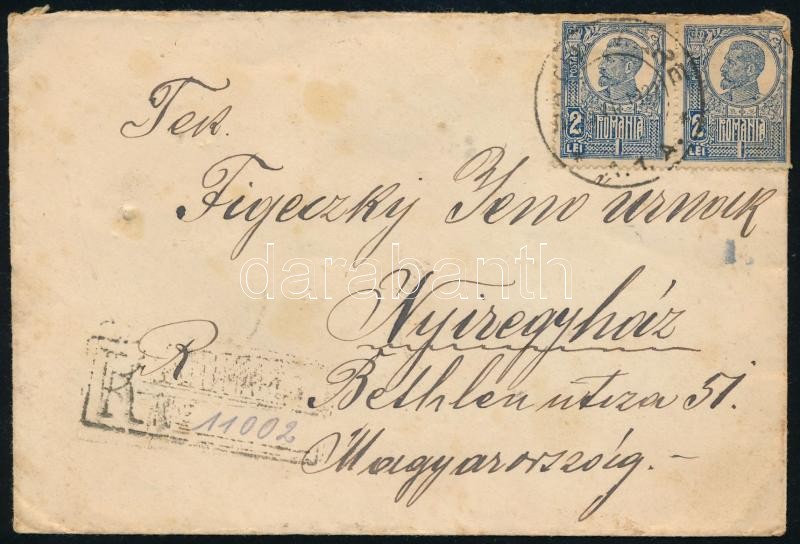 POSTA
2 LEI
ROMANIA
2 LEI
ROMANIA
Tek.
Figeczky Jenő urnak
darabanth
Nyiregyház
R
R
11002
Bethlen utcza 51.
Magyarország.-